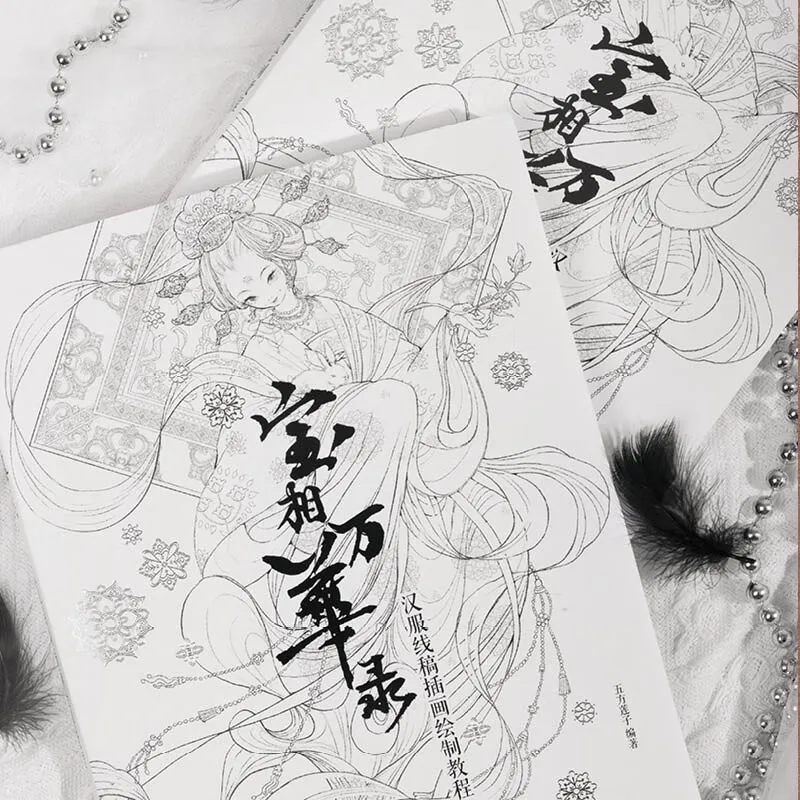 宝相万華录
汉服线稿插画绘制教程
五方莲子 编著
宝相万